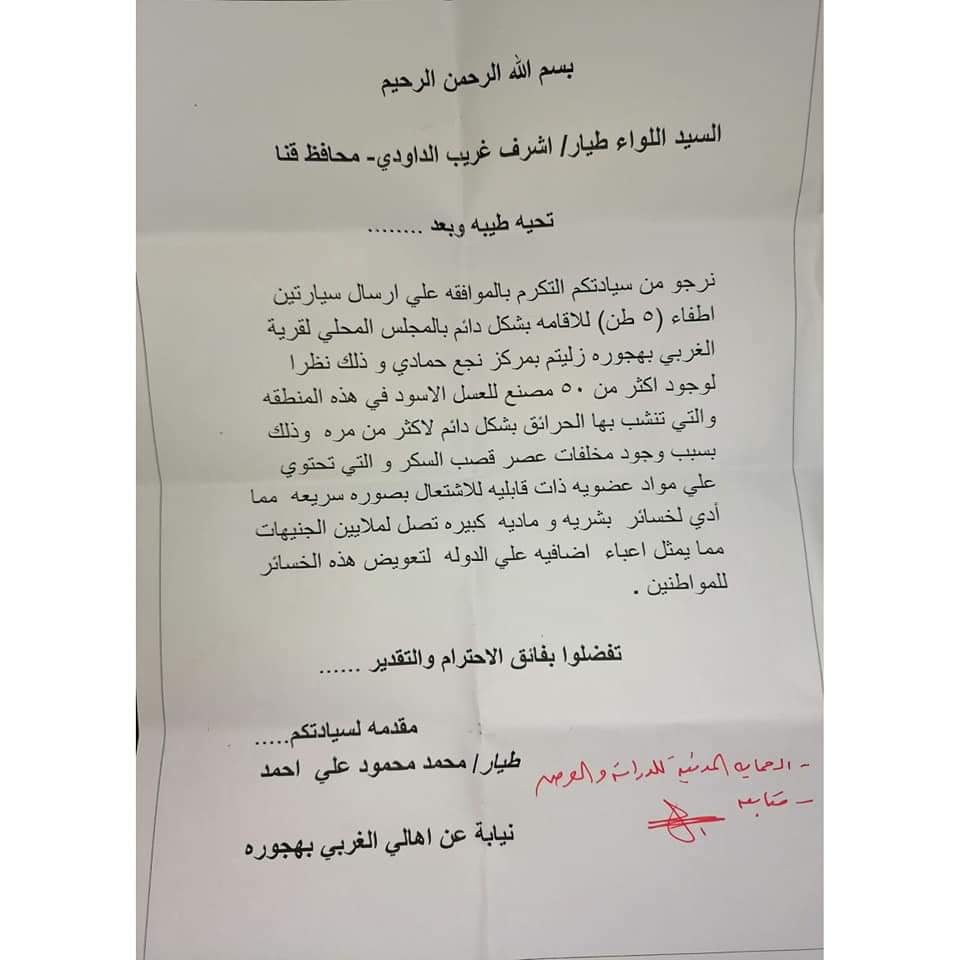 بسم الله الرحمن الرحيم
السيد اللواء طيار/ اشرف غريب الداودي- محافظ قنا
تحيه طيبه وبعد ........
نرجو من سيادتكم التكرم بالموافقه علي ارسال سيارتين
اطفاء (٥ طن) للاقامه بشكل دائم بالمجلس المحلي لقرية
الغربي بهجوره زليتم بمركز نجع حمادي و ذلك نظرا
لوجود اكثر من ٥٠ مصنع للعسل الاسود في هذه المنطقه
والتي تنشب بها الحرائق بشكل دائم لاكثر من مره وذلك
بسبب وجود مخلفات عصر قصب السكر و التي تحتوي
علي مواد عضويه ذات قابليه للاشتعال بصوره سريعه مما
أدي لخسائر بشريه و ماديه كبيره تصل لملايين الجنيهات
مما يمثل اعباء اضافيه علي الدوله لتعويض هذه الخسائر
للمواطنين .
تفضلوا بفائق الاحترام والتقدير ......
مقدمه لسيادتكم.....
طيار/ محمد محمود علي احمد
نيابة عن اهالي الغربي بهجوره
- الحمايه المدنية للدراسة والعرض
- متابعه